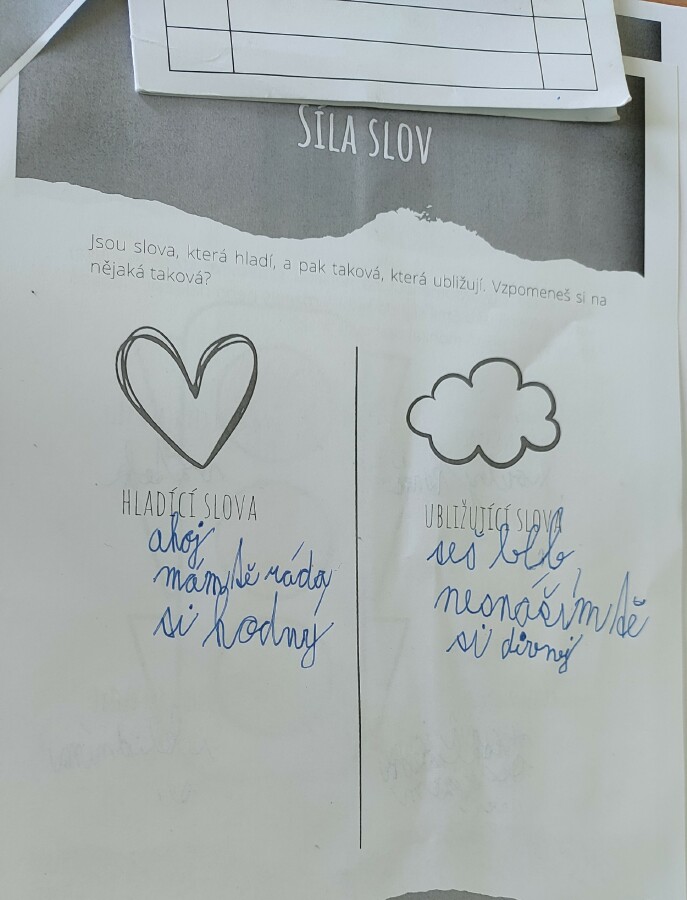 SÍLA SLOV
Jsou slova, která hladí, a pak taková, která ubližují. Vzpomeneš si na
nějaká taková?
HLADÍCÍ SLOVA
ahoj
mám tě ráda
si hodný
UBLIŽUJÍCÍ SLOVA
seš blb
nesnáším tě
si divnej